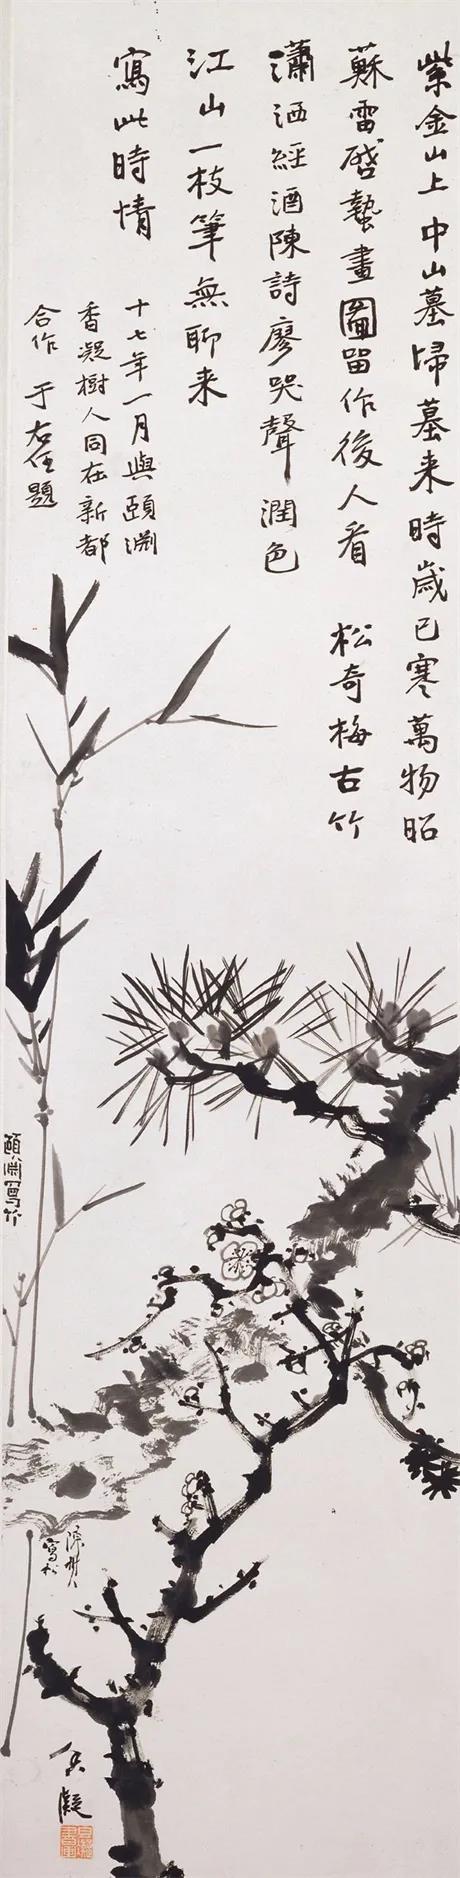 紫金山上中山墓埽墓来時歲已寒萬物昭
蘇雷啓蟄畫圖留作後人看 松奇梅古竹
瀟洒經酒陳詩廖哭聲 潤色
江山一枝筆無聊来
寫此時情
十七年一月與頤淵
香凝樹人同在新都
合作 于右任題
頤淵寫竹
陳樹人
寫松
香凝